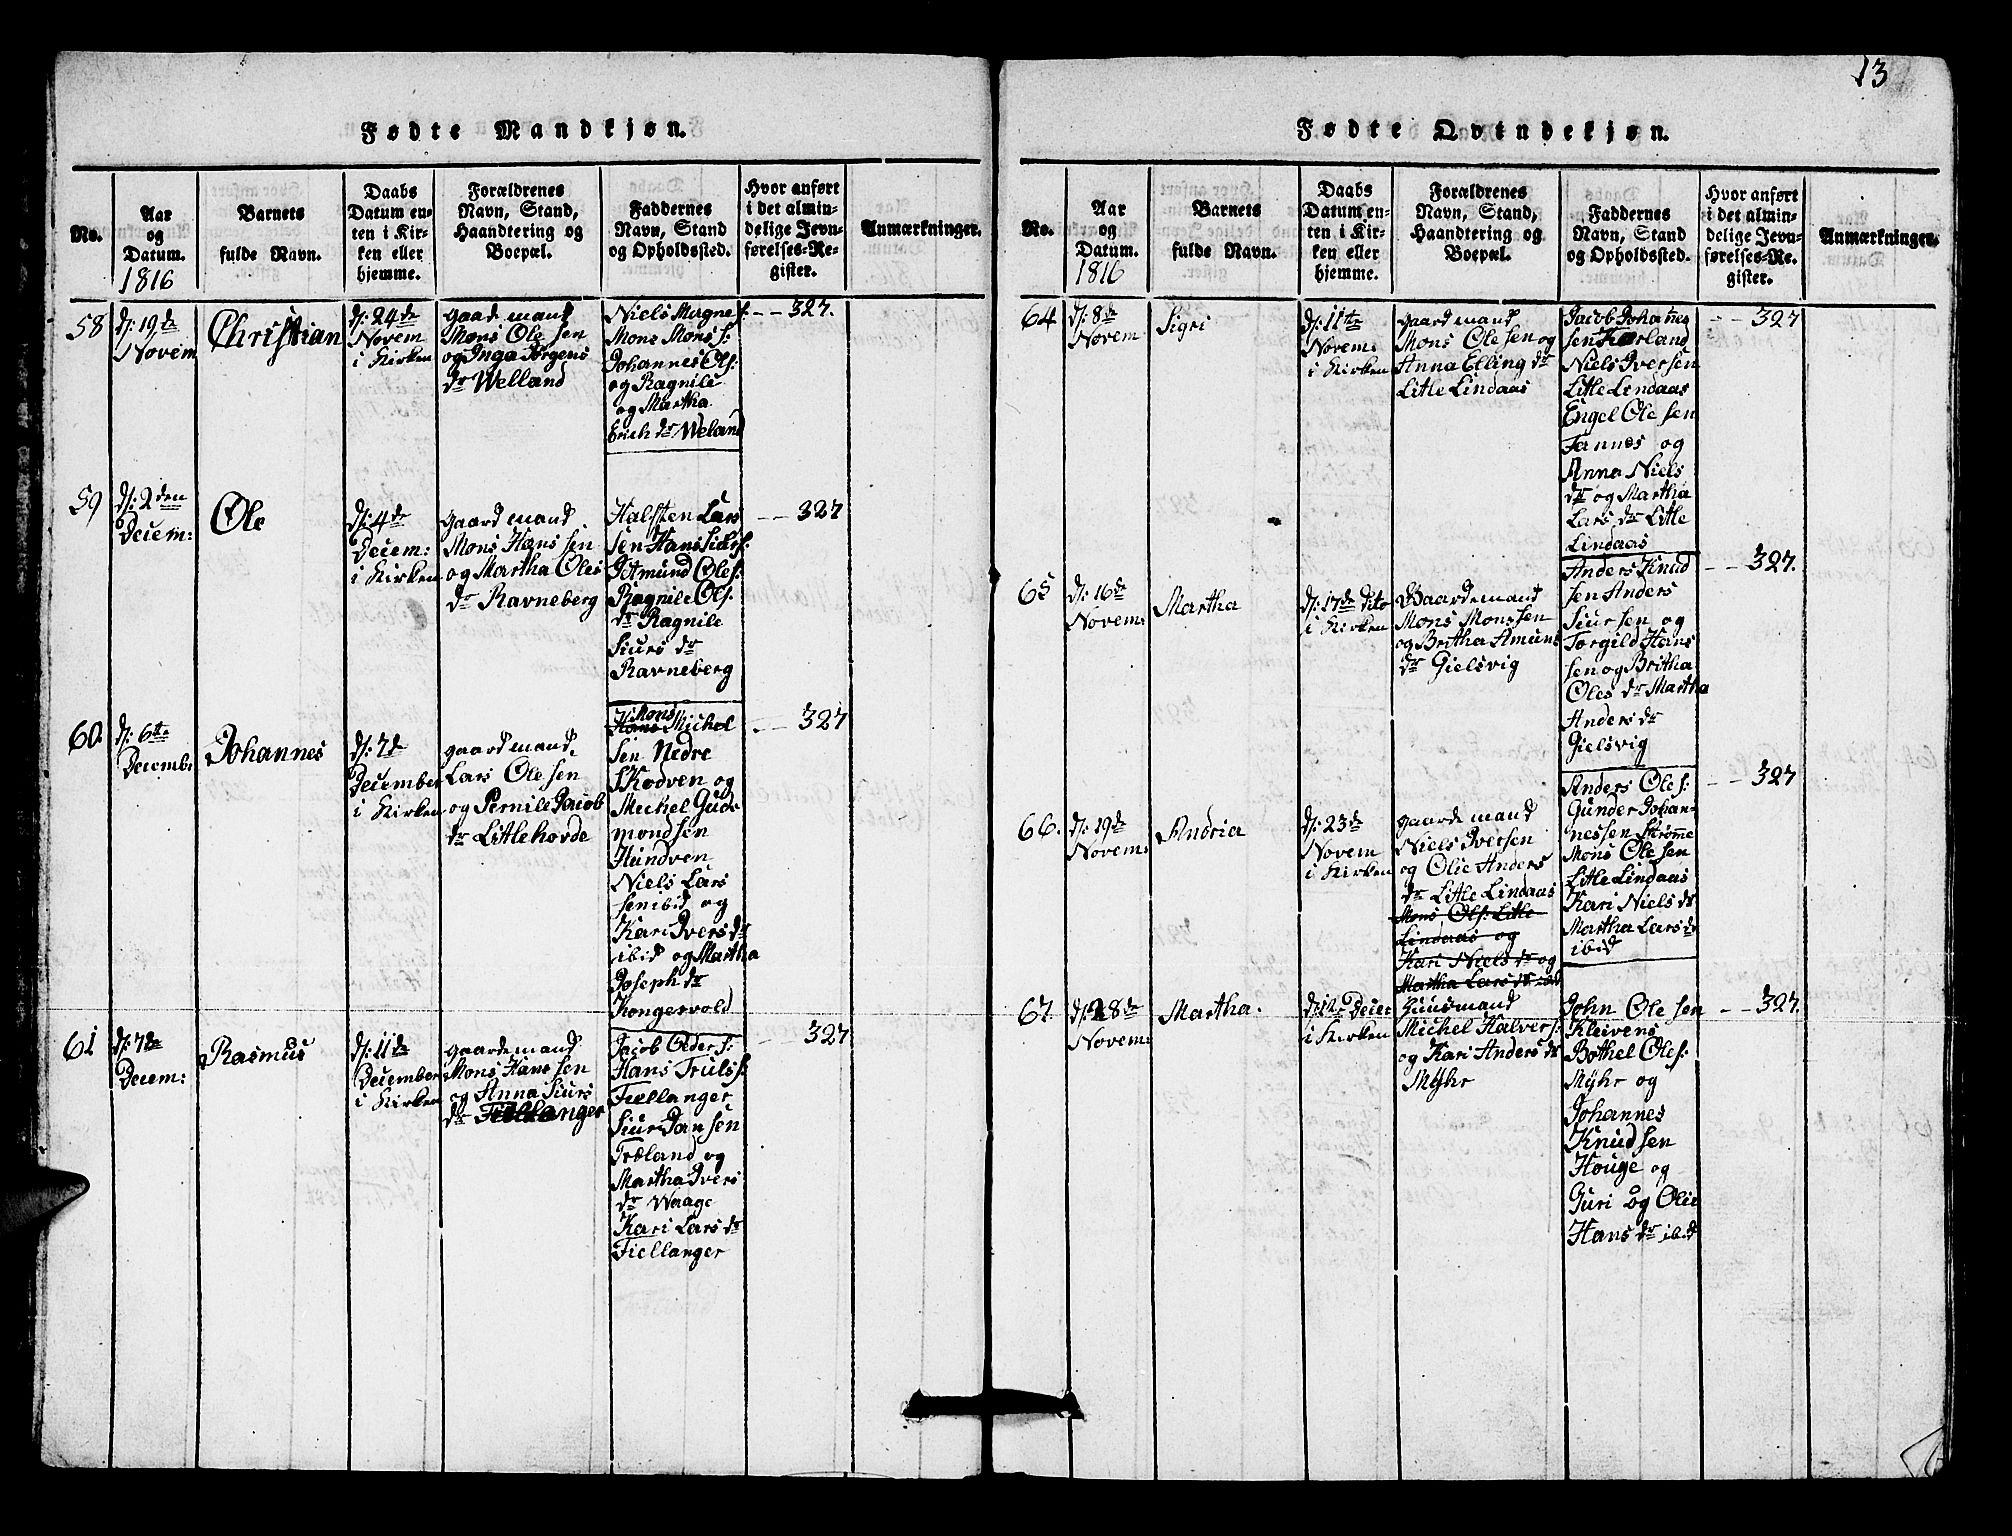 13
Fødte Mandkjøn.
No.
Aar
og
Datum.
1816
Barnets
fulde Navn.
Daabs
Datum en-
ten i Kir-
ken eller
hjemme.
Forældrenes
Navn, Stand,
Haandtering og
Boepæl.
Faddernes
Navn, Stand
og Opholdssted.
Hvor anført
i det almin-
delige Jevn-
førelses-Re-
gister.
Anmærkninger.
58
d: 19de
Novem
Christian
d: 24de
Novem
i Kirken
gaardmand
Mons Ole sen
og Inga Jørgens
dr Welland
Niels Magnes:
Mons Mons s:
Johannes Ols:
og Ragnile
og Martha
Erich dr Weland
327.
59
d: 2den
Decem:
Ole
d: 4de
Decem:
i Kirken
gaardmand
Mons Hans sen
og Martha Oles
dr Ravneberg
Halsten Lars
sen Hans
Amund Oles:
Ragnile Ols:
dr Ragnile
Siurs dr
Ravneberg
327
60.
d: 6te
Decemb:
Johannes
d: 7d
December
i Kirken
gaardmand
Lars Ole sen
og Pernile Jacob
dr Littlehovde
Mons
Hans Michel
sen Nedre
Skodven og
Michel Gud-
mondsen
Hundven
Niels Lars
sen ibid og
Kari Ivers dr
ibid og Martha
Joseph dr
Kongervold
327
61
d: 7de
Decem:
Rasmus
d: 11de
December
i Kirken
gaardemand
Mons Hans sen
og Anna Siurs
dr Fiellanger
Jacob Older s:
Hans Truls s:
Fiellanger
Siur Jan sen
Træland og
Martha Ivers
dr Waage
Kari Lars dr
Fiellanger
327
Fødte Qvindekjøn.
No.
Aar
og
Datum.
1816
Barnets
fulde Navn.
Daabs
Datum en-
ten i Kir-
ken eller
hjemme.
Forældrenes
Navn, Stand,
Haandtering og
Boepæl.
Faddernes
Navn, Stand
og Opholdssted.
Hvor anført
i det almin-
delige Jevn-
førelses-Re-
gister.
Anmærkninger.
64
d: 8de
Novem
Sigri
d: 11te
Novem:
i Kirken
gaardmand
Mons Ole sen og
Anna Elling dr
Litle Lindaas
Jacob Johanes
sen Kørland
Niels Iversen
Litle Lindaas
Engel Ole sen
Fannes og
Anna Niels
dr og Martha
Lars dr Litle
Lindaas
327
65
d: 16de
Novem:
Martha
d: 17de dito
i Kirken
Gaardemand
Mons Monssen
og Britha Amun
dr Gielsvig
Anders Knud
sen Anders
Siursen og
Torgild Hans
sen og Britha
Oles dr Martha
Anders dr
Gielsvig
327.
66.
d: 19de
Novem:
Andria
d: 23de
Novem
i Kirken
gaardemand
Niels Iversen
og Olie Anders
dr Litle Lindaas
Mons Ols: Litle
Lindaas og
Kari Niels dr og
Martha Lars dr ibid
Anders Ole s:
Gunder Johan-
nessen Strømme
Mons Ole sen
Litle Lindaas
Kari Niels dr
Martha Lars dr
ibid
327
67.
d: 28de
Novem:
Martha.
d: 12te Decem
i Kirken
Huusmand
Michel Halver s:
og Kari Anders dr
Myhr
John Ole sen
Kleivens
Bothel Oles:
Myhr og
Johannes
Knud sen
Houge og
Guri og Olie
Hans dr ibid
327.